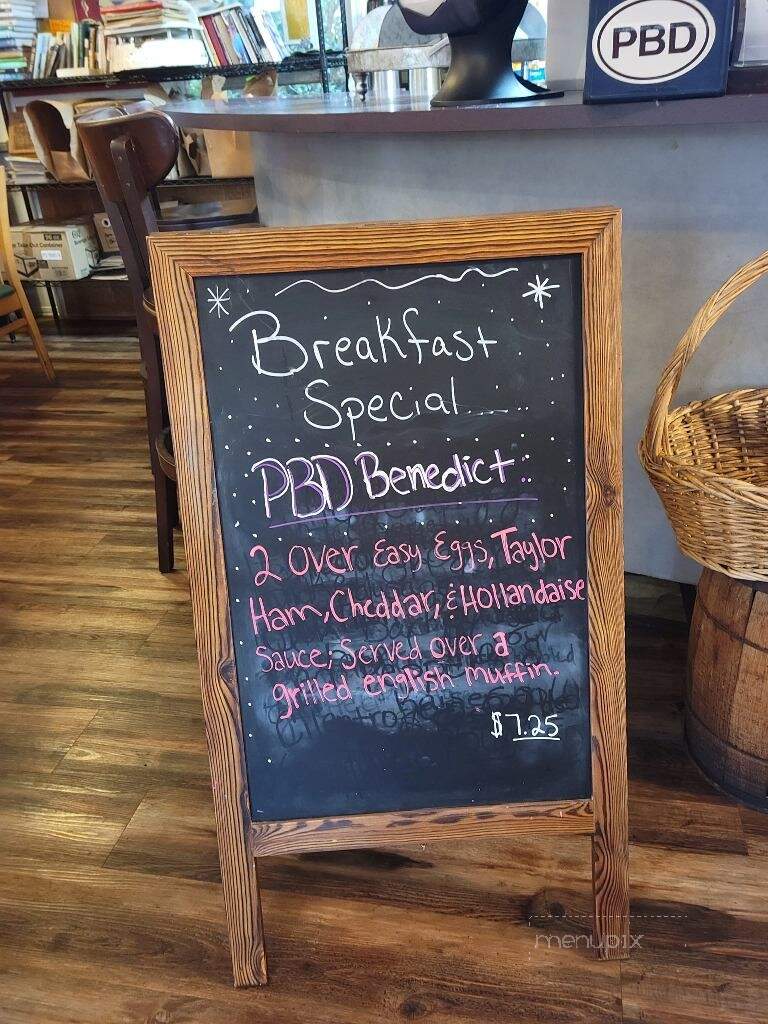 PBD
Take Out Container
Breakfast
Special......
PBD Benedict:.
2 Over Easy Eggs, Taylor
Ham, Cheddar, & Hollandaise
Sauce; Served over a
grilled english muffin.
$7.25
menupix